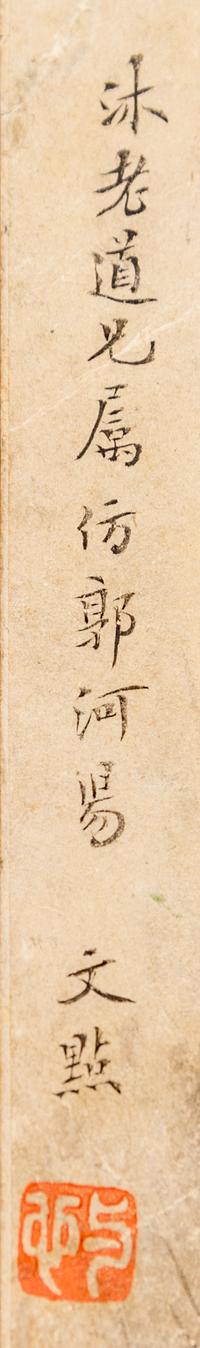 沐老道兄属仿郭河陽 文點